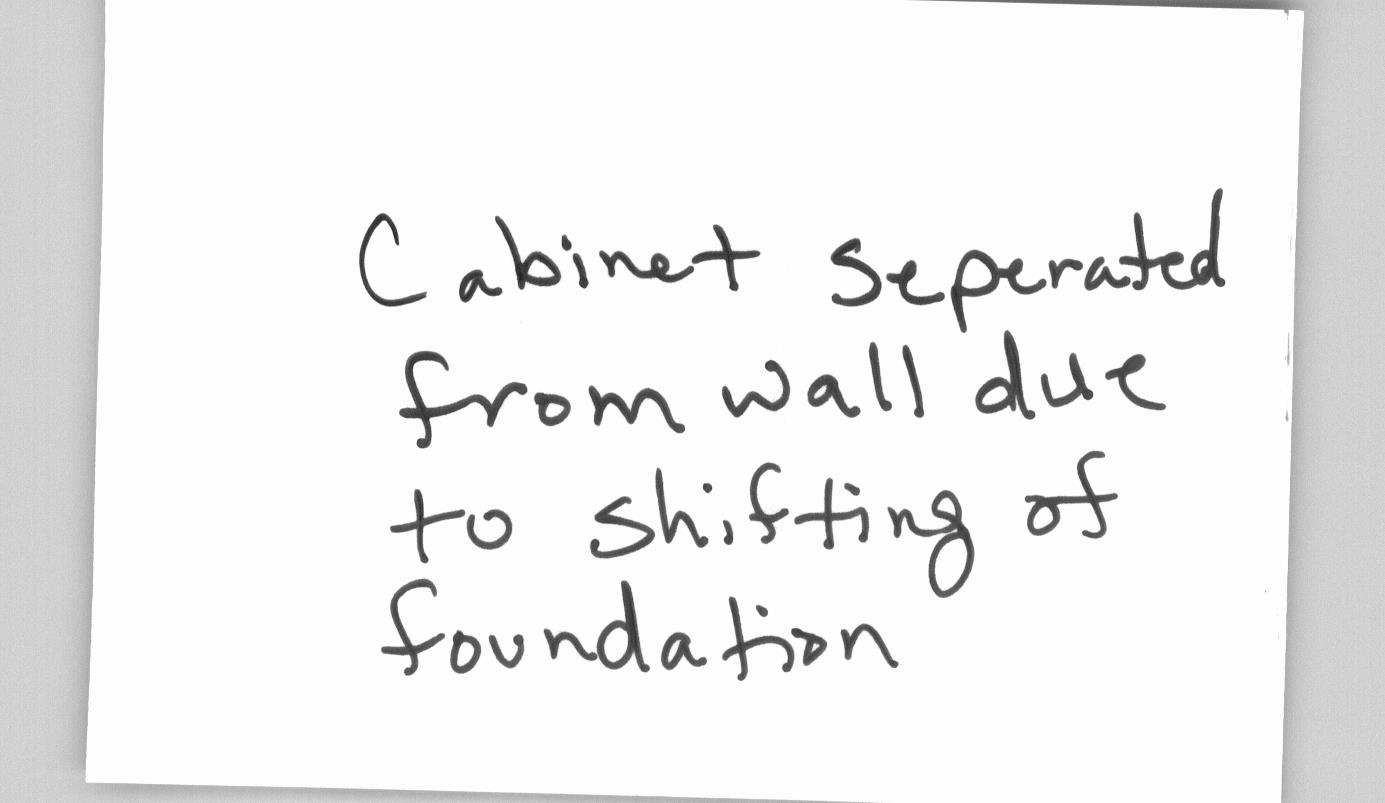 Cabinet seperated
from wall due
to shifting of
foundation